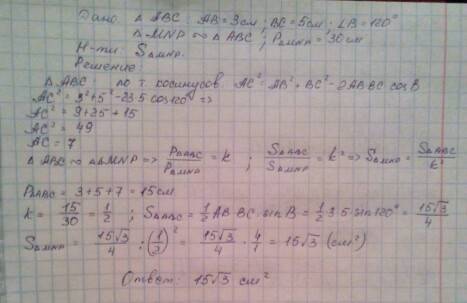 Дано: Δ ABC: AB = 3см; BC = 5см; ∠B = 120°
Δ MNP ∾ Δ ABC; P_ΔMNP = 30 см
Н-ти: S_ΔMNP.
Решение:
Δ ABC: по т. косинусов AC² = AB² + BC² - 2AB·BC cos B
AC² = 3² + 5² - 2·3·5 cos 120° =>
AC² = 9 + 25 + 15
AC² = 49
AC = 7
Δ ABC ∾ Δ MNP => P_ΔABC / P_ΔMNP = k ; S_ΔABC / S_ΔMNP = k² => S_ΔMNP = S_ΔABC / k²
P_ΔABC = 3 + 5 + 7 = 15 см
k = 15/30 = 1/2 ; S_ΔABC = 1/2 AB·BC·sin B = 1/2 3·5·sin 120° = 15√3/4
S_ΔMNP = 15√3/4 : (1/2)² = 15√3/4 · 4/1 = 15√3 (см²)
Ответ: 15√3 см²